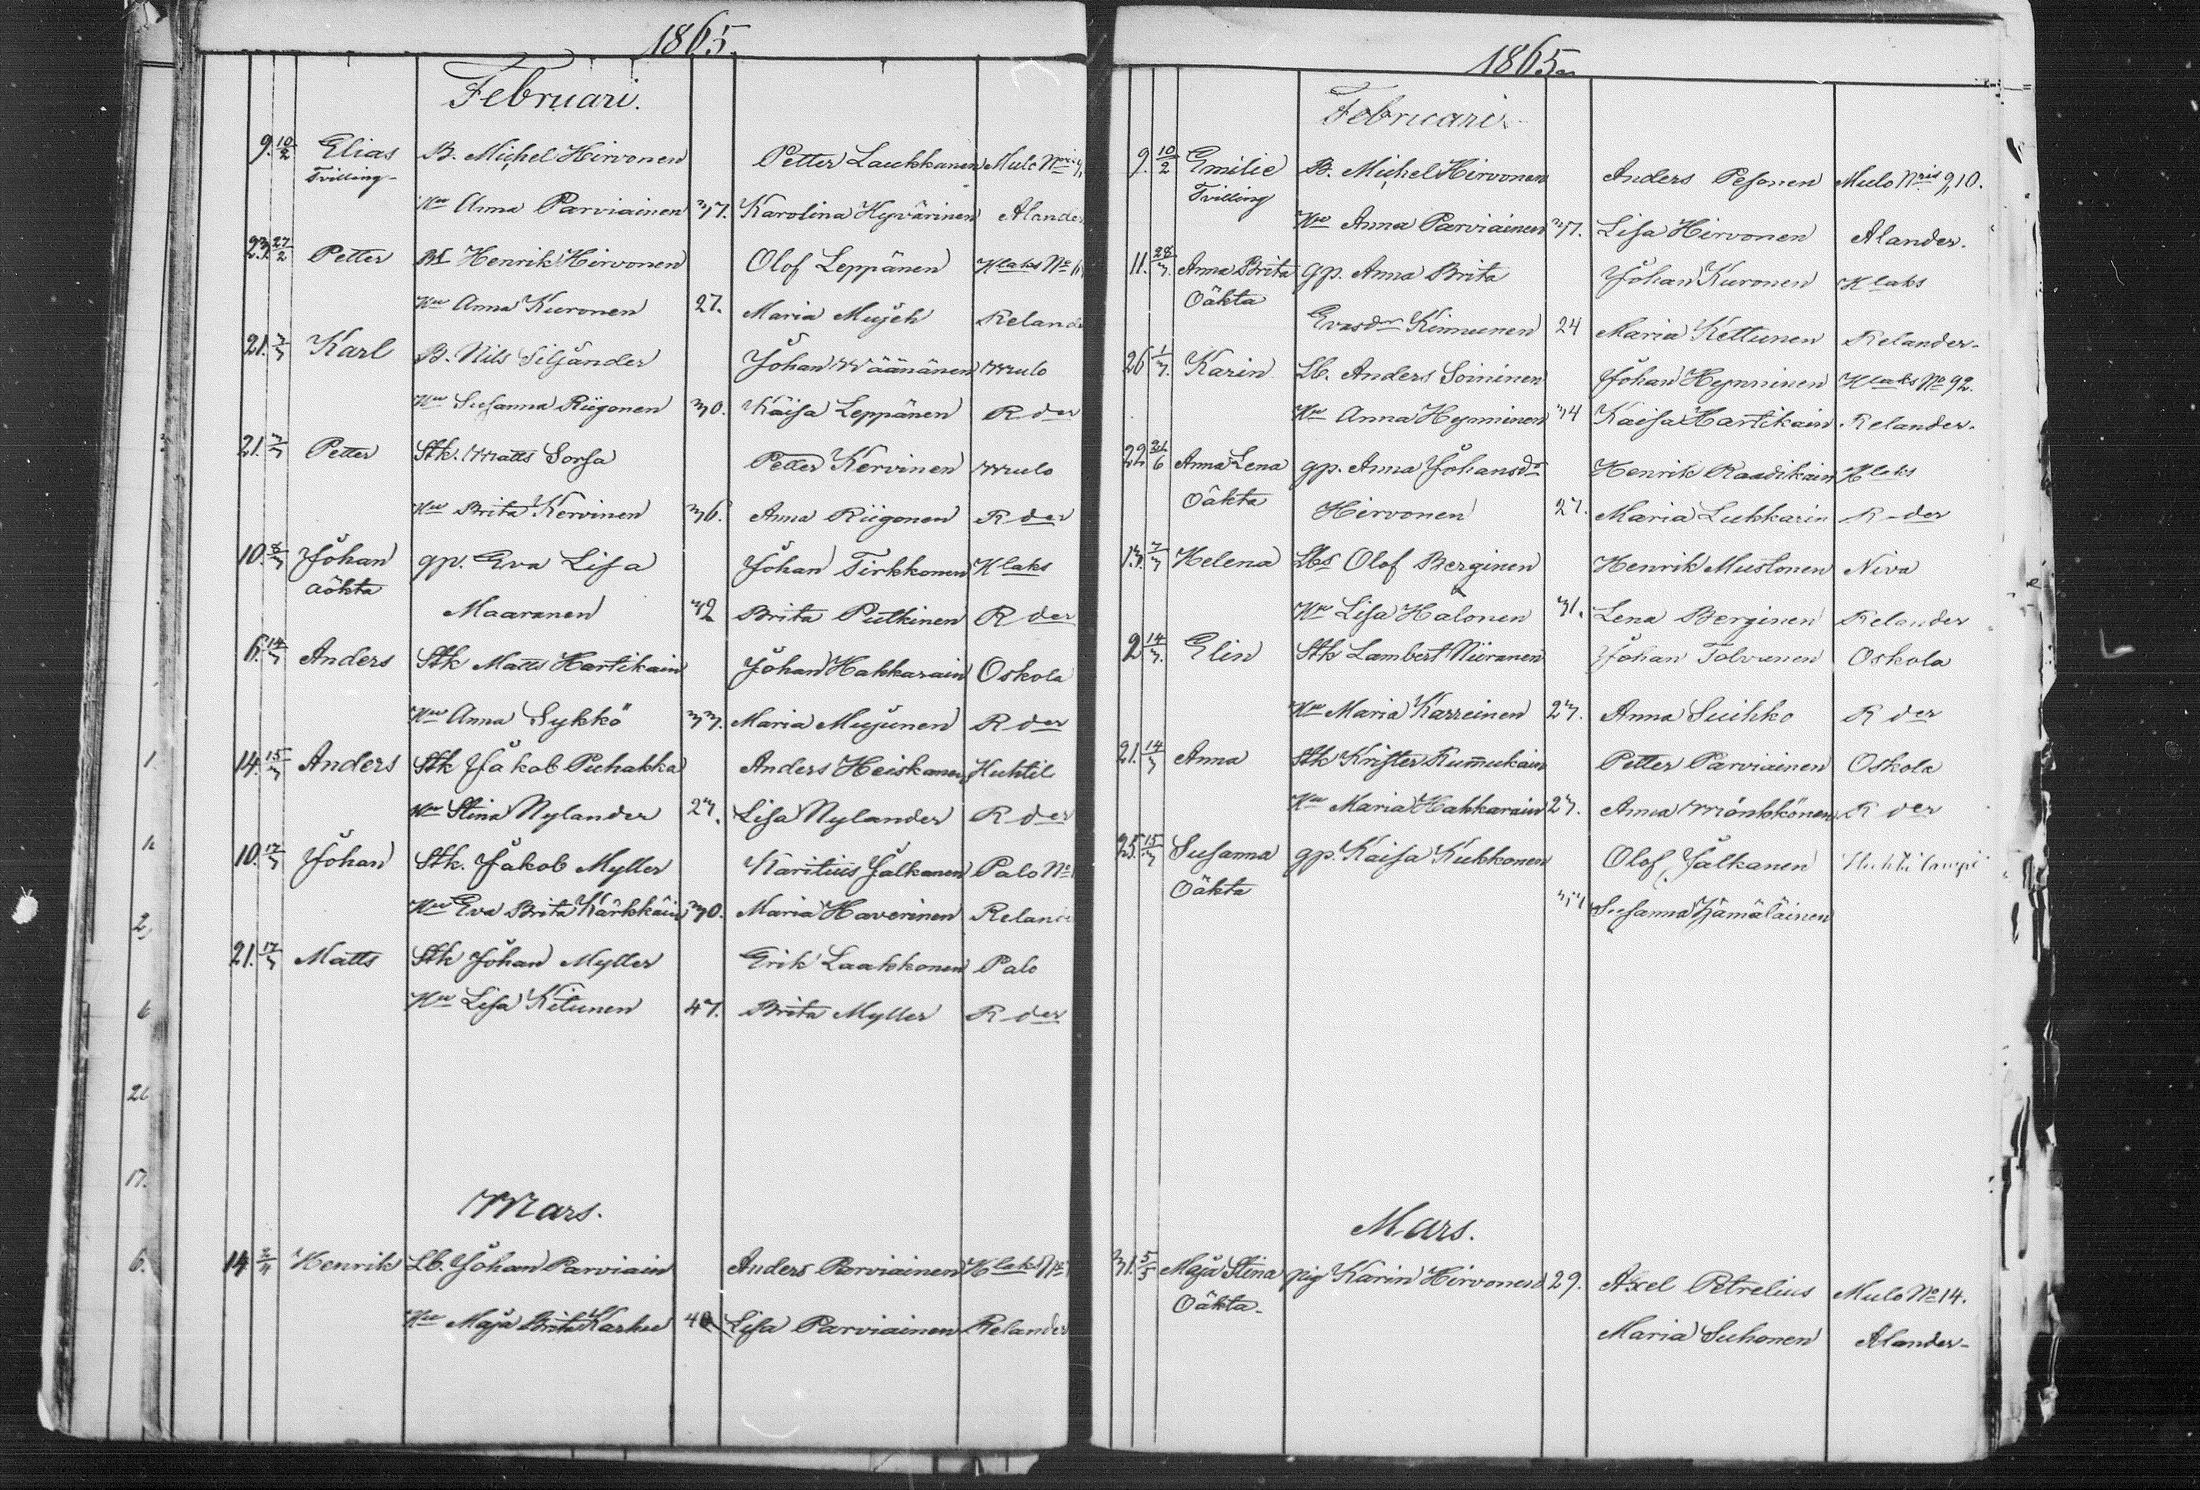 1865.
Februari.
9. 10/2 Elias B. Michel Hirvonen Petter Laukkanen Mulo Nris 9,
Tvilling
Hu Anna Parviainen 37. Karolina Hyvärinen Alander
23. 27/2 Petter Bd Henrik Hirvonen Olof Leppänen Klaks No
Hu Anna Kuronen 27. Maria Mujeh Reland
21. 7/3 Karl B. Nils Siljander Johan Väänänen Mulo
Hu Susanna Riigonen 30. Kaisa Leppänen R der
21. 7/3 Petter Stk. Matts Sorsa Petter Kervinen Mulo
Hu Brita Kervinen 36. Anna Riigonen R der
10. 8/3 Johan gp. Eva Lisa Johan Tirkkonen Klaks
oäkta
Maaranen 32 Brita Putkinen R der
6. 14/3 Anders Stk Matts Hartikain Johan Hakkarain Oskola
Hu Anna Sykkö 33. Maria Mujunen R der
14. 15/3 Anders Stk Jakob Puhakka Anders Heiskanen Huhtil
Hu Stina Nylander 23. Lisa Nylander R der
10. 17/3 Johan Stk. Jakob Myller Karitius Jalkanen Palo No
Hu Eva Brita Kärkkäin 30. Maria Haverinen Reland
21. 17/3 Matts Stk Johan Myller Erik Laakkonen Palo
Hu Lisa Kitunen 43. Brita Myller R der
Mars.
14 Henrik Lb. Johan Parviain Anders Parviainen Klaks No
Hu Maja Brita Karhu 40 Lisa Parviainen Relander
1865.
Februari.
9. 10/2 Emilie B. Michel Hirvonen Anders Pesonen Mulo Nris 9,10.
Tvilling
Hu Anna Parviainen 37. Lisa Hirvonen Alander.
11. 28/3 Anna Brita gp. Anna Brita Johan Kuronen Klaks
Oäkta
Evasdr Kinnunen 24 Maria Kettunen Relander.
26 1/3 Karin Lb. Anders Soininen Johan Hynninen Klaks No 92.
Hu Anna Hynninen 34 Kaisa Hartikain. Relander.
22 Anna Lena gp. Anna Johansdr Henrik Raadikain Klaks
Oäkta Hirvonen 27. Maria Lukkarin R der
13. 7/3 Helena Lbs Olof Berginen Henrik Mustonen Niva
Hu Lisa Halonen 31. Lena Berginen Relander
2 14/3 Elin Stk Lambert Niiranen Johan Tolvanen Oskola
Hu Maria Karreinen 23. Anna Suihko R der
21. 14/3 Anna Stk Krister Rummukain Petter Parviainen Oskola
Hu Maria Hakkarain 23. Anna Mönkkönen R der
25. 15/3 Susanna gp. Kaisa Kukkonen Olof Jalkanen Huhtilampi
Oäkta
Susanna Hämäläinen
Mars.
31. 5/5 Maja Stina pig Karin Hirvonen 29. Axel Petrelius Mulo No 14.
Oäkta.
Maria Suhonen Alander